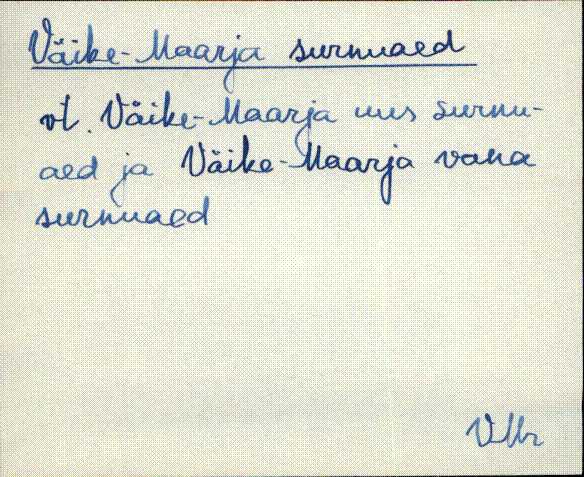 Väike-Maarja surnuaed
vt. Väike-Maarja uus surnu-
aed ja Väike-Maarja vana
surnuaed
VMr